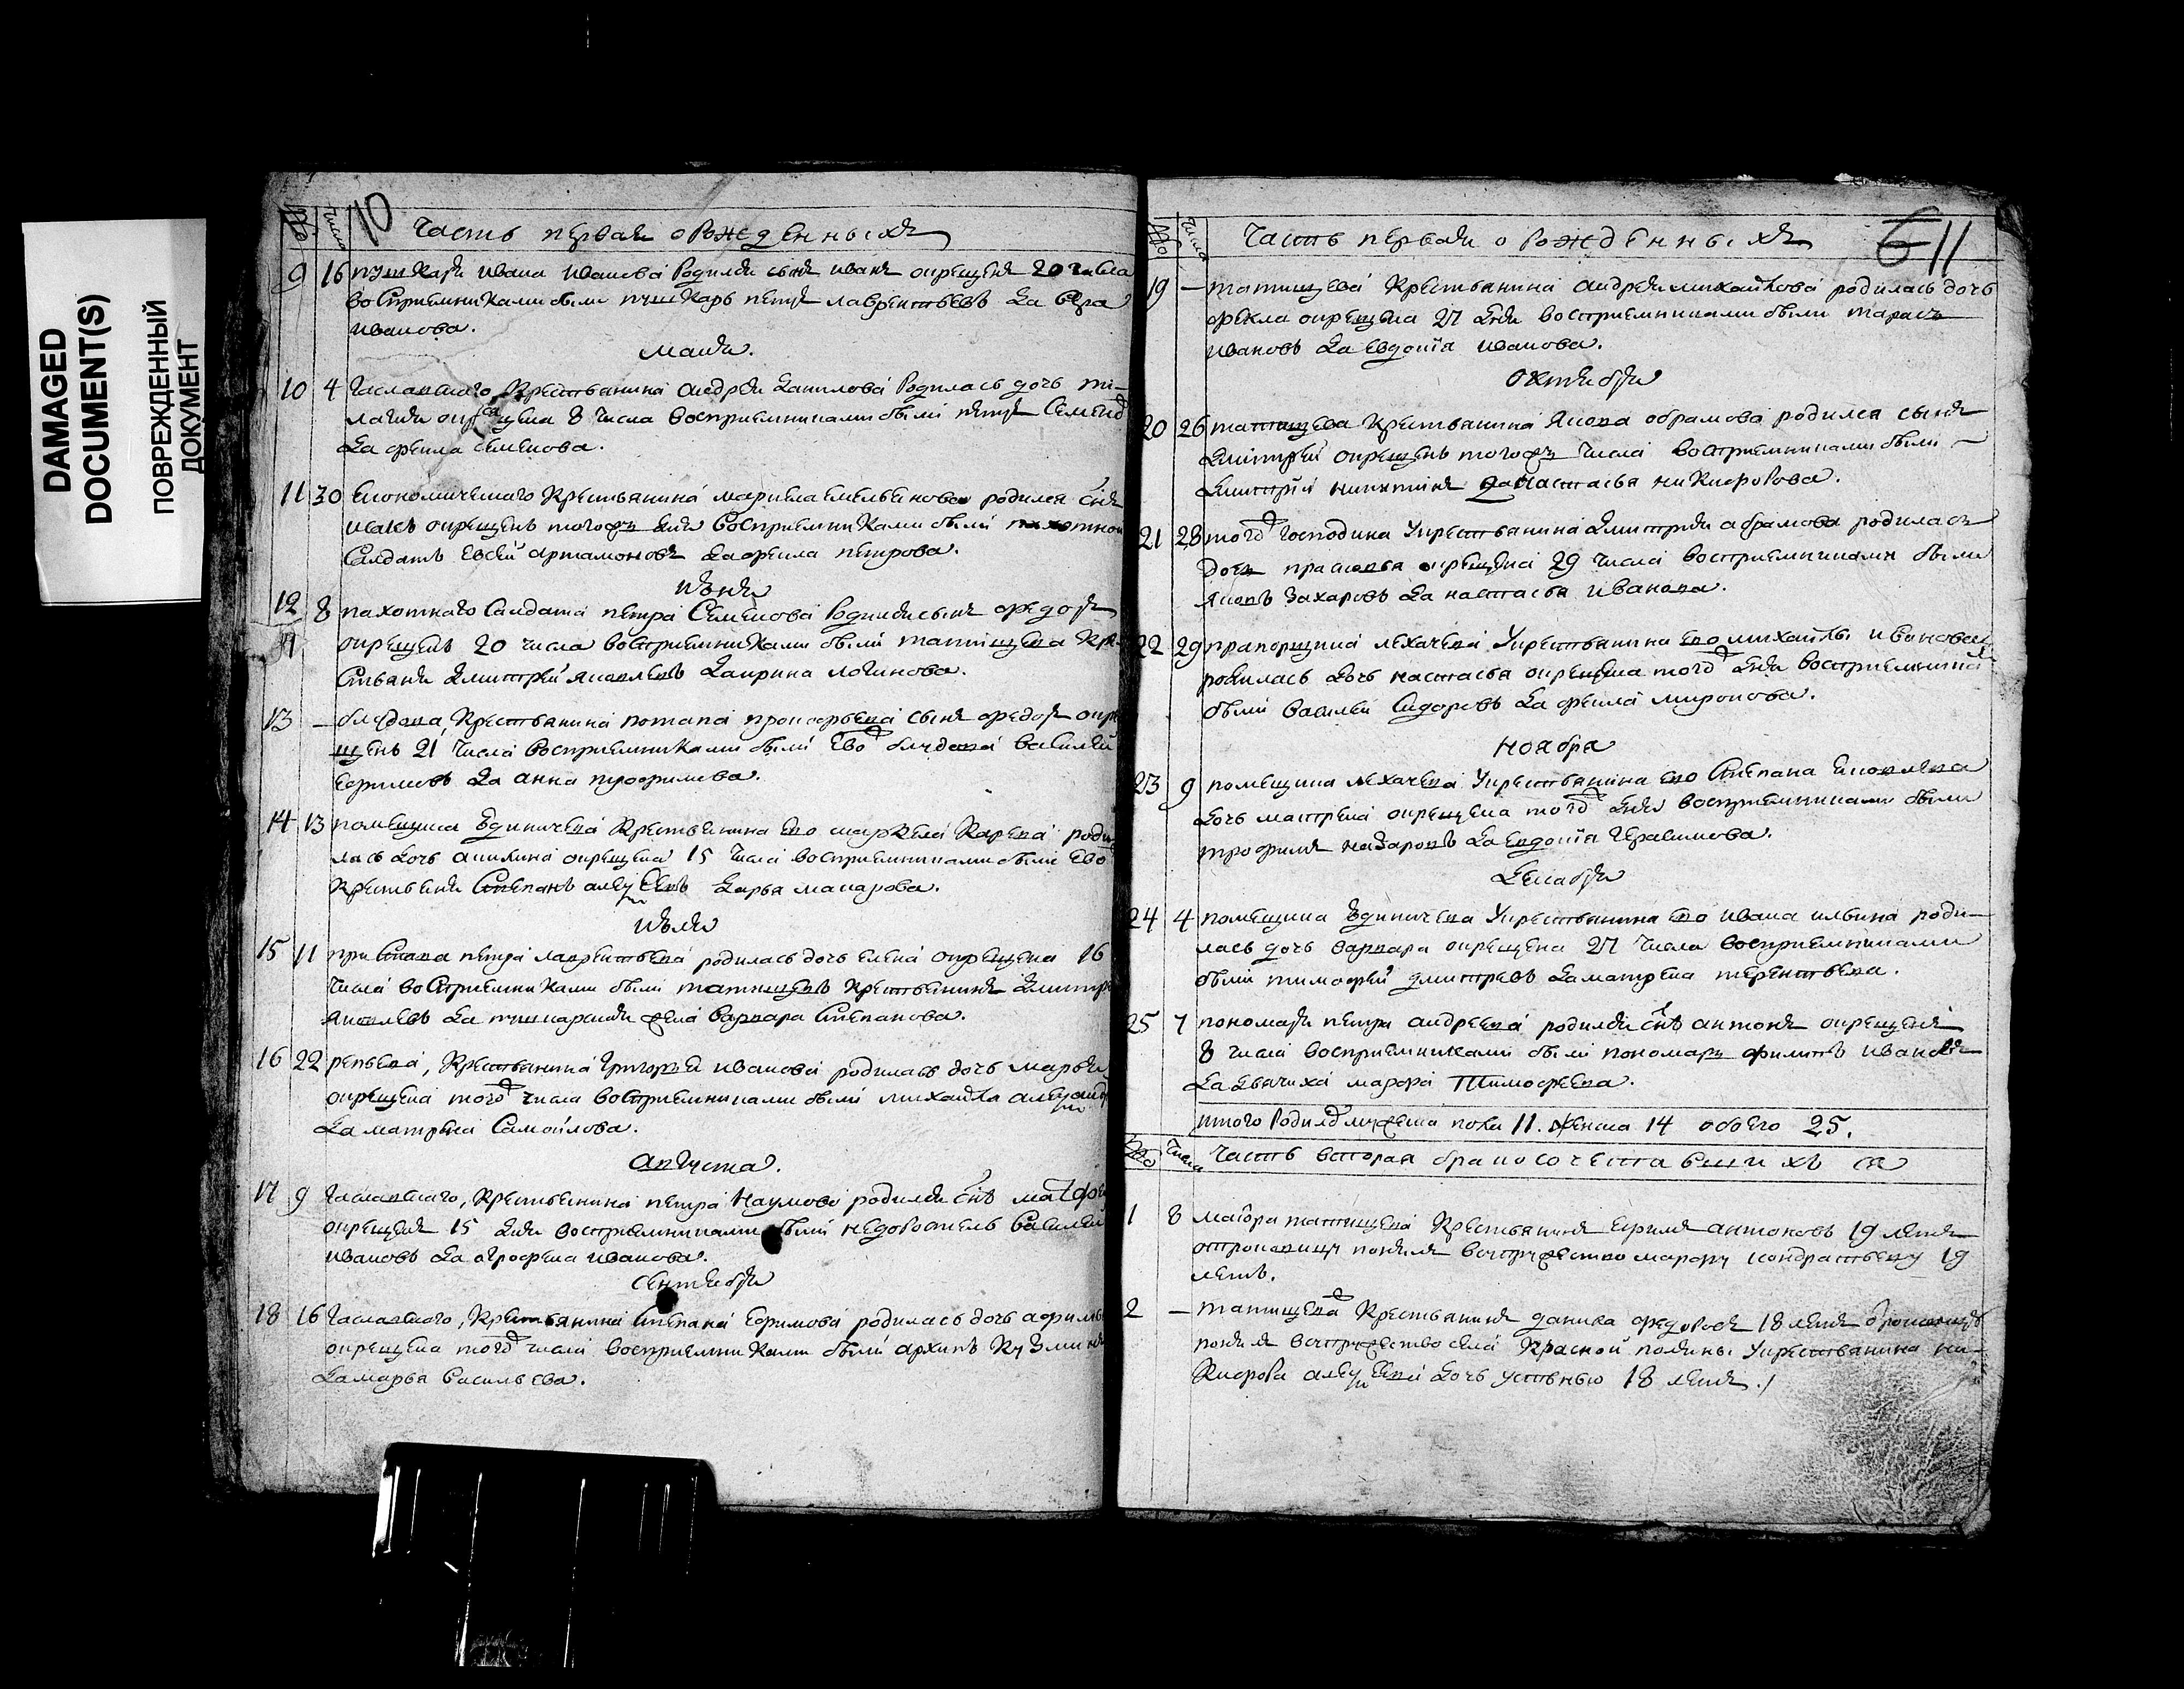 DAMAGED
DOCUMENT(S)
ПОВРЕЖДЕННЫЙ
ДОКУМЕНТ
№ число 10 Часть первая о рожденныхъ
9 16 пушкаря ивана иванова родился сынъ иванъ окрещенъ 20 числа
восприемниками были пушкарь петръ лаврентьевъ да вера
иванова.
маия.
10 4 крестьянина андрея данилова родилась дочь
окрещена 8 числа восприемниками были петръ
да фекла семенова.
11 30 економическаго крестьянина марка емельянова родился снъ
окрещенъ тогожъ дня восприемниками были пахотной
салдатъ евсей артамоновъ да фекла петрова.
июня
12 8 пахотнаго салдата петра семенова родился сынъ федоръ
окрещенъ 20 числа восприемниками были татищева кре
стьяня дмитрей яковлевъ даирина логинова.
13 – крестьянина потапа прокофьева сынъ федоръ окре
щенъ 21 числа восприемниками были ево василей
ефимовъ да анна трофимова.
14 13 помещика крестьянина ево карева роди
лась дочь акилина окрещена 15 числа восприемниками были ево
крестьяня степанъ алексеевъ дарья макарова.
июля
15 11 петра лаврентьева родилась дочь елена окрещена 16
числа восприемниками были татищевъ крестьянинъ дмитре
яковлевъ да варвара степанова.
16 22 репьева, крестьянина григорья иванова родилась дочь марья
окрещена того числа восприемниками были михайла александ
да матрена самойлова.
августа.
17 9 крестьянина петра наумова родился снъ матфе
окрещенъ 15 дня восприемниками были василей
ивановъ да огрофена иванова.
сентября
18 16 крестьянина степана ефимова родилась дочь
окрещена того числа восприемниками были архипъ кузмин
да марья васильева.
№ число Часть первая о рожденныхъ 6 11
19 – татищева крестьянина андрея михайлова родилась дочь
фекла окрещена 27 дня восприемниками были тарасъ
ивановъ да евдокіа иванова.
октября
20 26 татищева крестьянина якова обрамова родился сынъ
дмитрей окрещенъ тогожъ числа восприемниками были
дмитрій никитинъ да настасья никифорова.
21 28 того господина укрестьянина дмитрия абрамова родилась
дочь прасковья окрещена 29 числа восприемниками были
яковъ захаровъ да настасья иванова.
22 29 прапорщика лихачева укрестьянина ево михайлы иванова
родилась дочь настасья окрещена того дня восприемника
были василей сидоровъ да фекла миронова.
ноабра
23 9 помещика лихачева укрестьянина ево степана яковлева
дочь матрена окрещена того дня восприемниками были
трофимъ назаровъ да евдокіа герасимова.
декабря
24 4 помещика укрестьянина ево ивана ильина роди–
лась дочь варвара окрещена 27 числа восприемниками
были тимофей дмитревъ да матрена терентьева.
25 7 пономаря петра андреева родился снъ антонъ окрещенъ
8 числа восприемниками были пономарь филипъ ивановъ
да дьячиха марфа тимофеева.
итого родило мужеска пола 11. женска 14 обоего 25.
№ числа Часть вторая бракосочетавшихъ ся
1 8 маиора татищева крестьянинъ ефимъ антоновъ 19 летъ
отроковицу понялъ всупружество марфу кондратьеву 19
летъ.
2 – татищева крестьянинъ данила федоровъ 18 летъ
понялъ всупружество села красной поляны укрестьянина ни–
кифора алексеева дочь устинью 18 летъ.